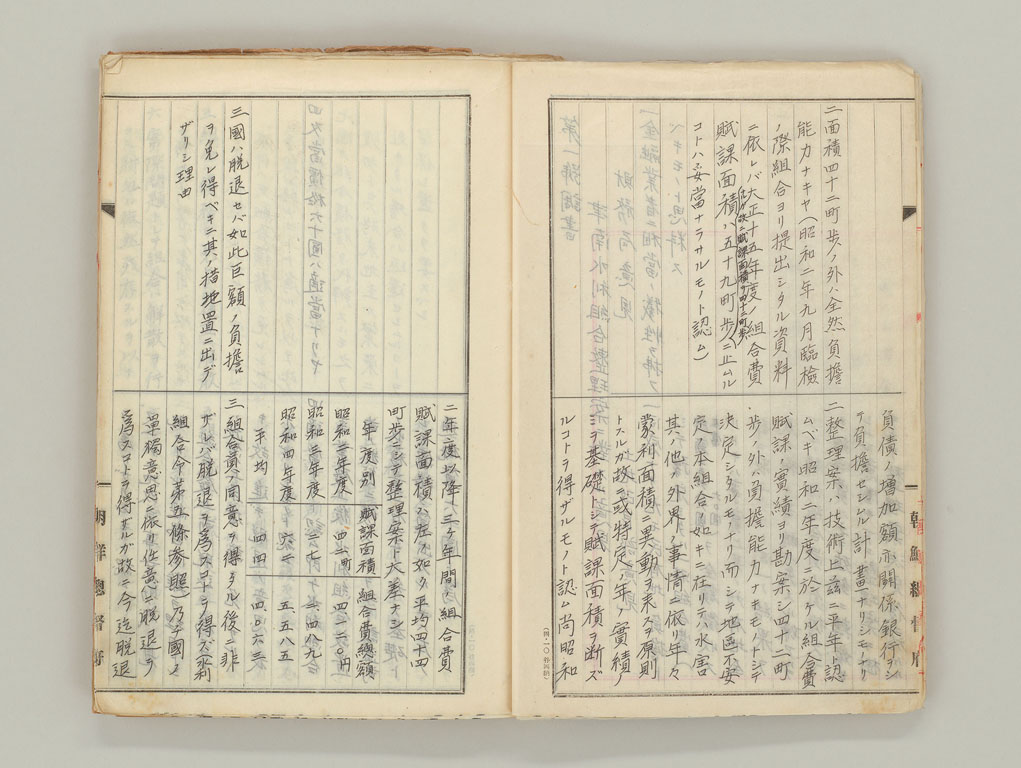 二面積四十二町歩ノ外ハ全然負擔
能力ナキヤ(昭和二年九月臨檢
ノ際組合ヨリ提出シタル資料
ニ依レバ大正十五年度ノ組合費
賦課面積ハ五十九町歩
ニ止ムル
コトハ妥當ナラサルモノト認ム)
負債ノ増加額亦關係銀行ヲシ
テ負擔セシムル計畫ナリシモノナリ
二整理案ハ技術上茲ニ平年ト認
ムベキ昭和二年度ニ於ケル組合費
賦課ノ實績ヨリ勘案シ四十二町
歩ノ外ハ負擔能力ナキモノトシテ
決定シタルモノナリ而シテ地區不安
定ノ本組合ノ如キニ在リテハ水害
其ノ他ノ外界ノ事情ニ依リ年々
蒙利面積ニ異動ヲ來スヲ原則
トスルガ故ニ或特定ノ年ノ實積ノ
ミヲ基礎トシテ賦課面積ヲ断ズ
ルコトヲ得ザルモノト認ム尚昭和
朝鮮總督府
三國ハ脱退セバ如此巨額ノ負擔
ヲ免レ得ベキニ其ノ措置ニ出デ
ザリシ理由
二年度以降三ケ年間ノ組合費
賦課面積ハ左ノ如ク平均四十四
町歩ニシテ整理案ト大差ナシ
年度別 賦課面積 組合費總額
昭和二年度 四二町 四一二〇円
昭和三年度
昭和四年度 五五八五
平均 四四 四〇六三
三組合員ノ同意ヲ得タル後ニ非
ザレバ脱退ヲ爲スコトヲ得ズ(水利
組合令第五條参照)乃チ國ノ
單獨意思ニ依リ任意ニ脱退ヲ
爲スコトヲ得ザルガ故ニ今迄脱退
朝鮮總督府